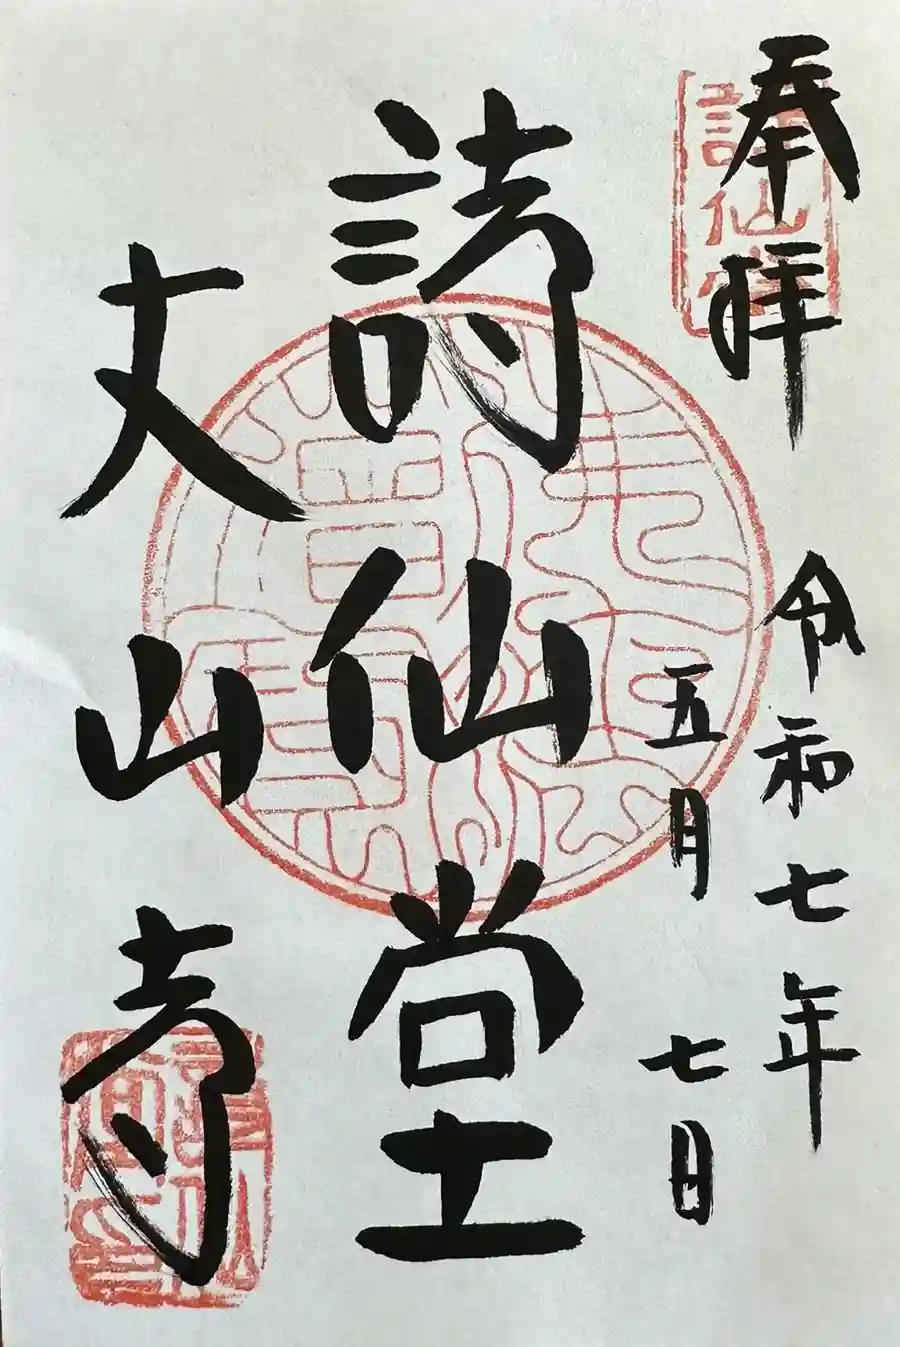 奉拝
令和七年
五月七日
詩仙堂
丈山寺
詩仙堂